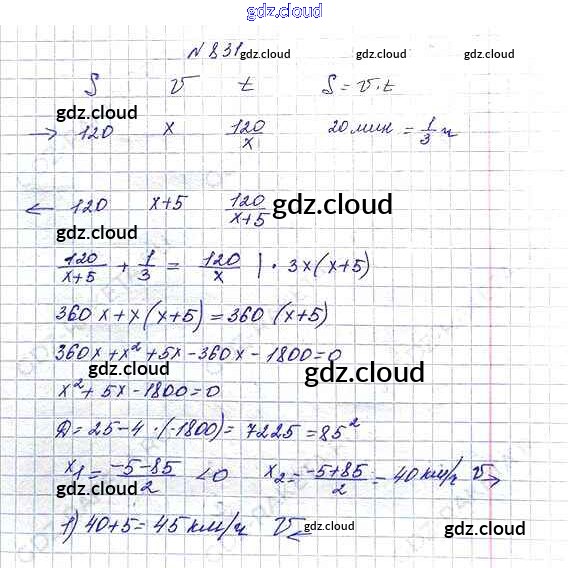 gdz.cloud
N 831 gdz.cloud
S V t S = V · t
gdz.cloud gdz.cloud gdz.cloud
→ 120 x 120/x 20 мин = 1/3 ч
← 120 x+5 120/(x+5) gdz.cloud
gdz.cloud
120/(x+5) + 1/3 = 120/x | · 3x(x+5)
360x+x(x+5)=360(x+5)
gdz.cloud
360x+x²+5x-360x-1800=0
x²+5x-1800=0 gdz.cloud
Д=25-4·(-1800)=7225=85²
gdz.cloud
x₁=(-5-85)/2 <0 x₂=(-5+85)/2=40 км/ч V→
gdz.cloud gdz.cloud
1) 40+5=45 км/ч V← gdz.cloud gdz.cloud
gdz.cloud